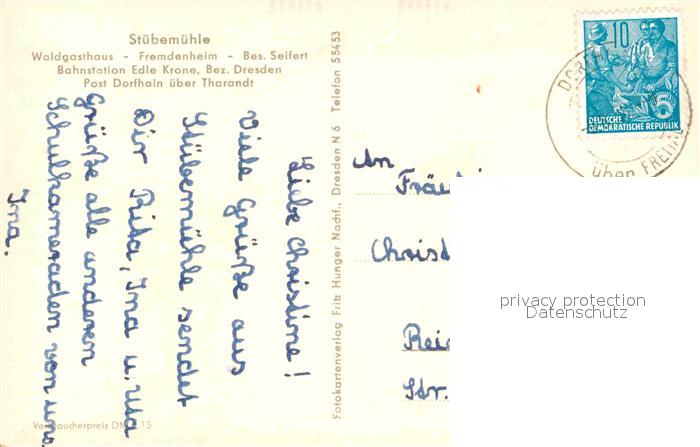 Stübemühle
Waldgasthaus - Fremdenheim - Bes. Seifert
Bahnstation Edle Krone, Bez. Dresden
Post Dorfhain über Tharandt
Liebe Christine!
Viele Grüße aus
Stübemühle sendet
Dir Rita, Ina u. Uta
Grüße alle anderen
Schulkameraden von uns.
Ina.
Verbraucherpreis DM 0,15
Fotokartenverlag Fritz Hunger Nachf., Dresden N 6 Telefon 55453
10
5
DEUTSCHE
DEMOKRATISCHE REPUBLIK
über FREITAL
An
Fräul
Christ
Rei
Str.
privacy protection
Datenschutz